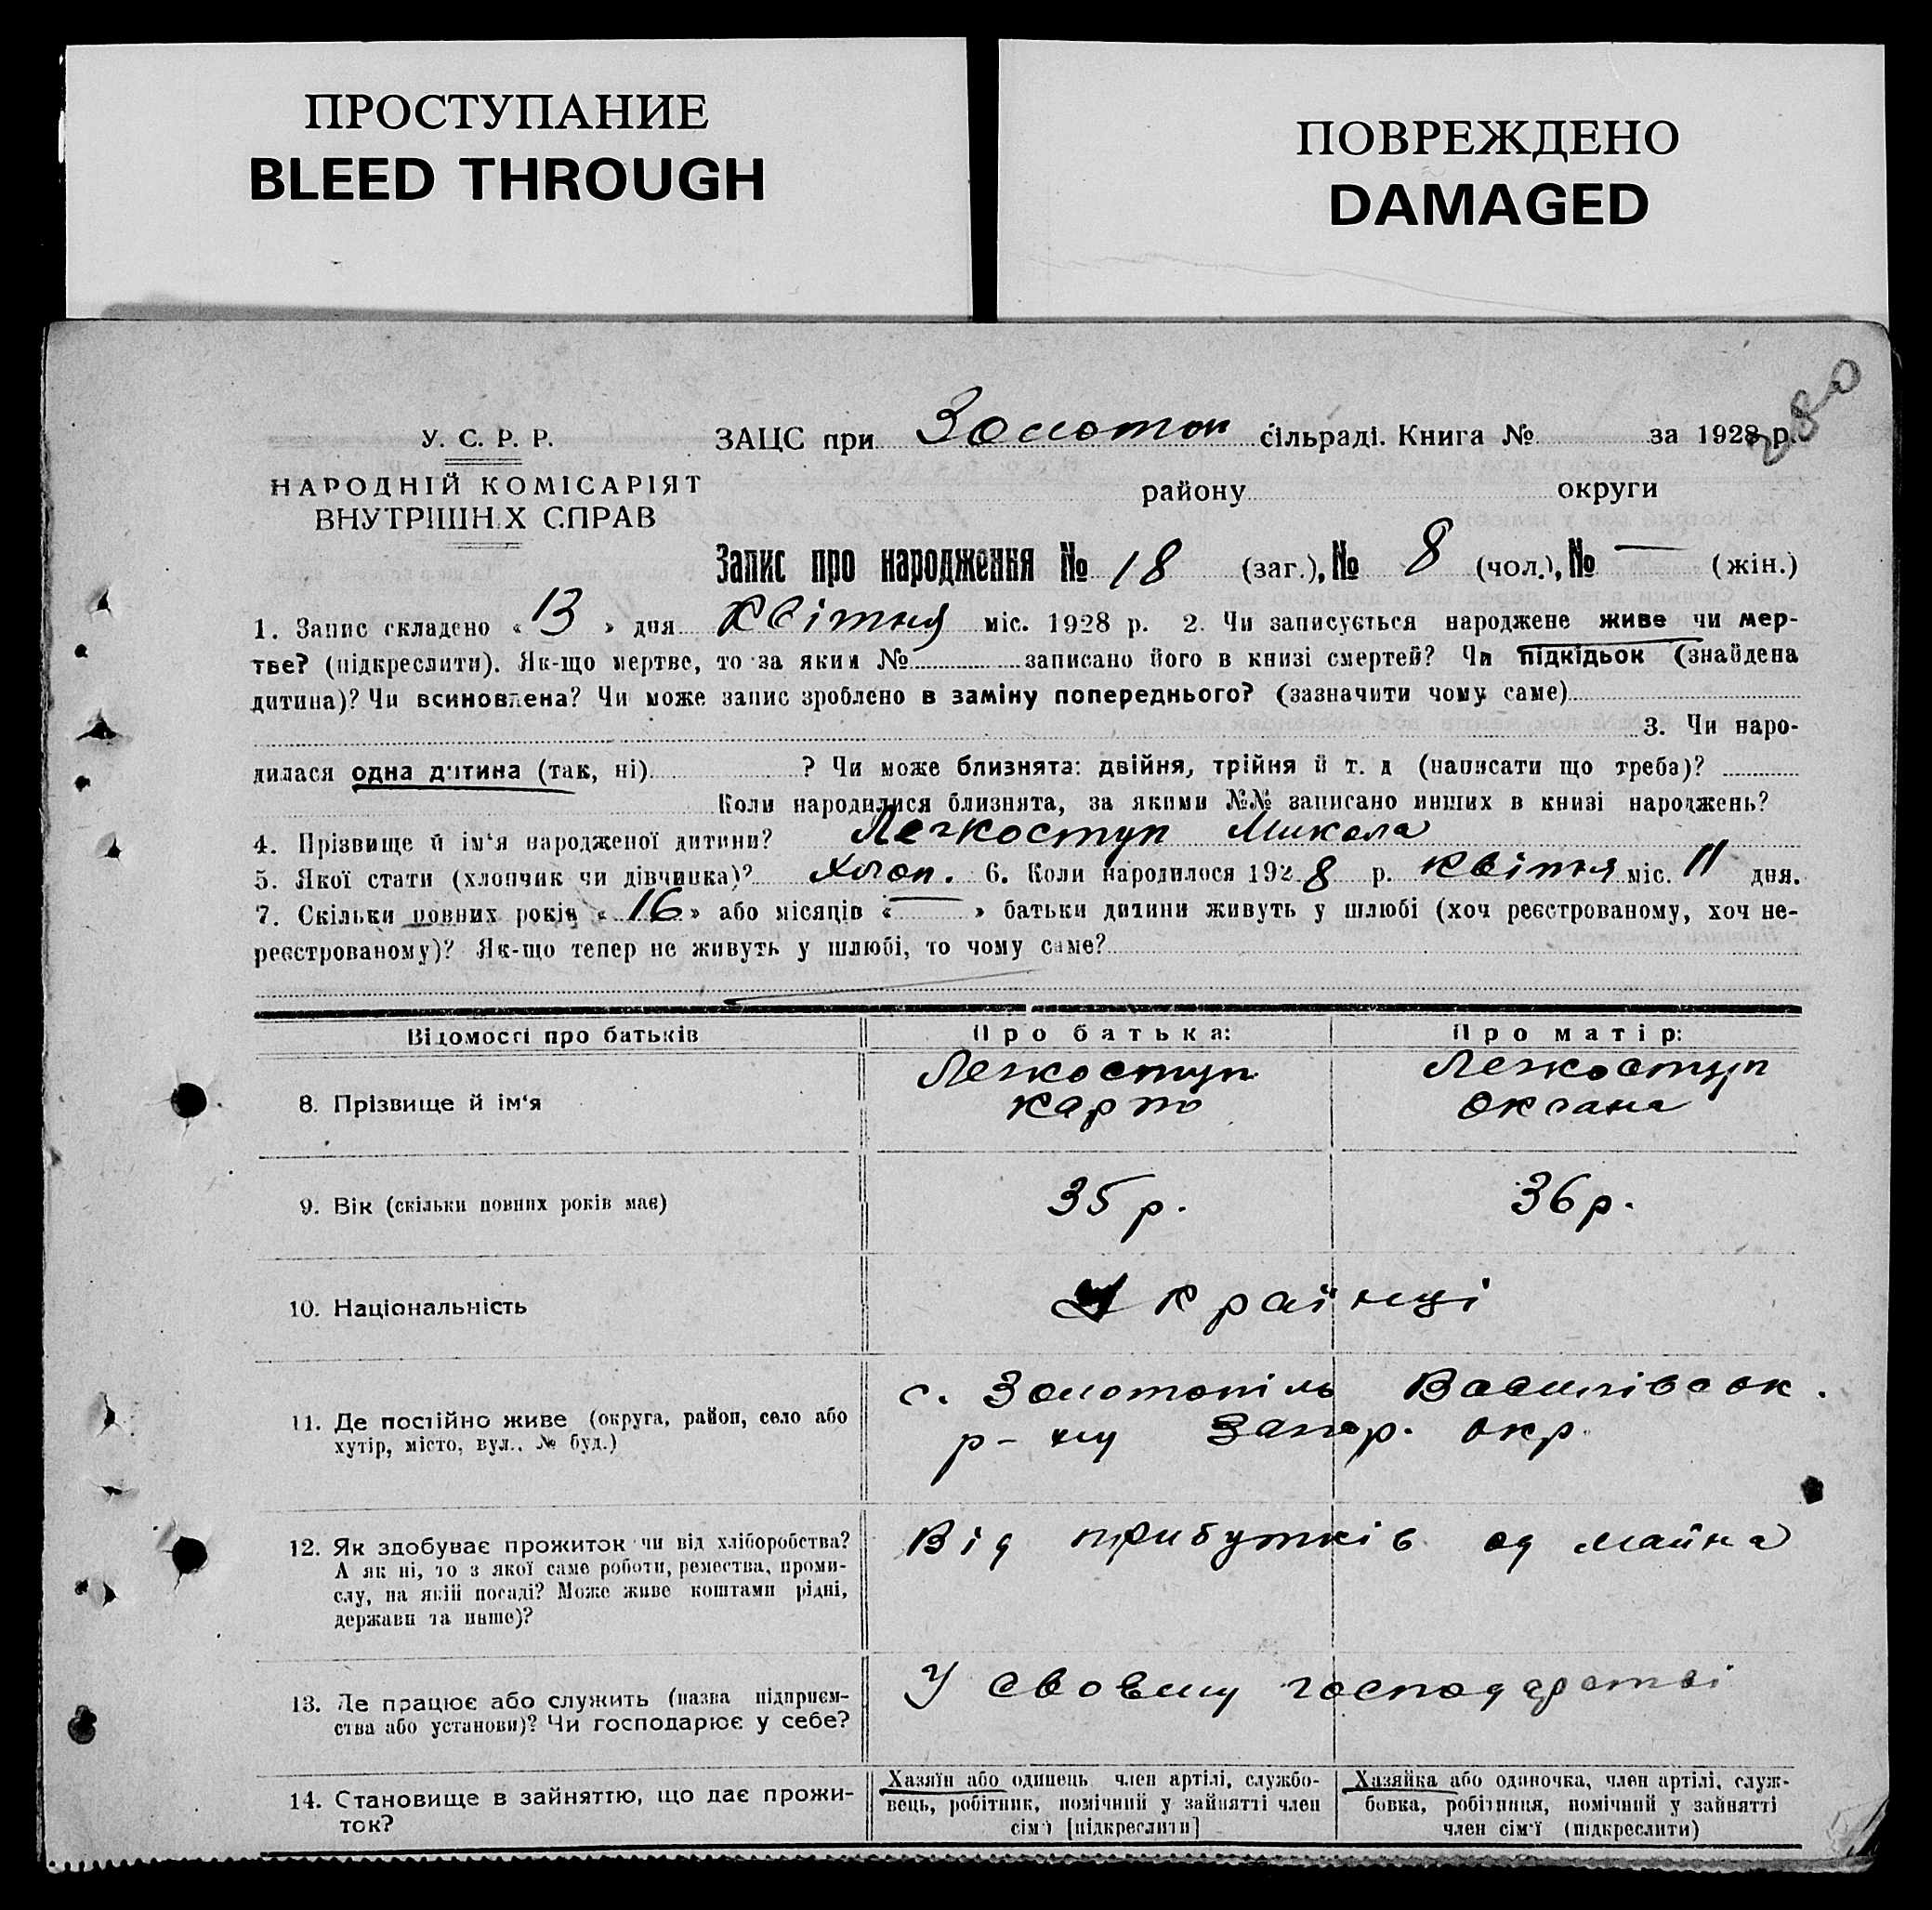 ПРОСТУПАНИЕ
BLEED THROUGH
ПОВРЕЖДЕНО
DAMAGED
280
У. С. Р. Р.
НАРОДНІЙ КОМІСАРІЯТ
ВНУТРІШНІХ СПРАВ
ЗАЦС при Золотоп сільраді. Книга № за 1928 р.
району округи
Запис про народження № 18 (заг.), № 8 (чол.), № — (жін.)
1. Запис складено « 13 » дня Квітня міс. 1928 р. 2. Чи записується народжене живе чи мер-
тве? (підкреслити). Як-що мертве, то за яким № записано його в книзі смертей? Чи підкідьок (знайдена
дитина)? Чи всиновлена? Чи може запис зроблено в заміну попереднього? (зазначити чому саме)
3. Чи наро-
дилася одна дитина (так, ні) ? Чи може близнята: двійня, трійня й т. д (написати що треба)?
Коли народилися близнята, за якими №№ записано инших в книзі народжень?
4. Прізвище й ім‘я народженої дитини? Легкоступ Микола
5. Якої стати (хлопчик чи дівчинка)? Хлоп. 6. Коли народилося 1928 р. Квітня міс. 11 дня.
7. Скільки повних років « 16 » або місяців « — » батьки дитини живуть у шлюбі (хоч реєстрованому, хоч не-
реєстрованому)? Як-що тепер не живуть у шлюбі, то чому саме?
Відомості про батьків
Про батька:
Про матір:
8. Прізвище й ім‘я
Легкоступ
Карпо
Легкоступ
Оксана
9. Вік (скільки повних років має)
35 р.
36 р.
10. Національність
Українці
11. Де постійно живе (округа, район, село або
хутір, місто, вул., № буд.)
с. Золотопіль Василівсок.
р-ну Запор. окр.
12. Як здобуває прожиток чи від хліборобства?
А як ні, то з якої саме роботи, ремества, проми-
слу, на якій посаді? Може живе коштами рідні,
держави та инше)?
Від прибутків од майна
13. Де працює або служить (назва підприєм-
ства або установи)? Чи господарює у себе?
У своєму господарстві
14. Становище в зайняттю, що дає прожи-
ток?
Хазяїн або одинець член артілі, службо-
вець, робітник, помічний у зайнятті член
сім‘ї [підкреслити]
Хазяйка або одиночка, член артілі, служ-
бовка, робітниця, помічний у зайнятті
член сім‘ї (підкреслити)